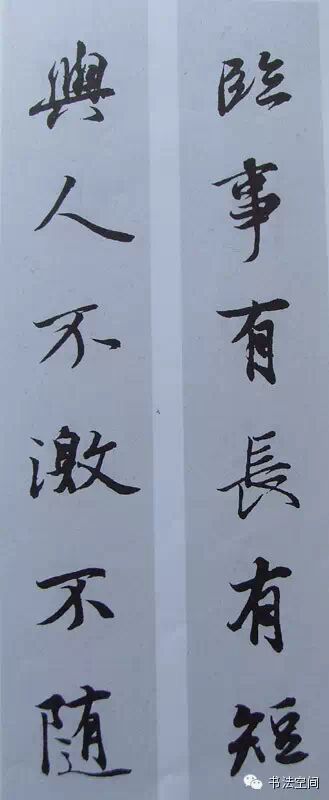 臨事有長有短
與人不激不随
书法空间